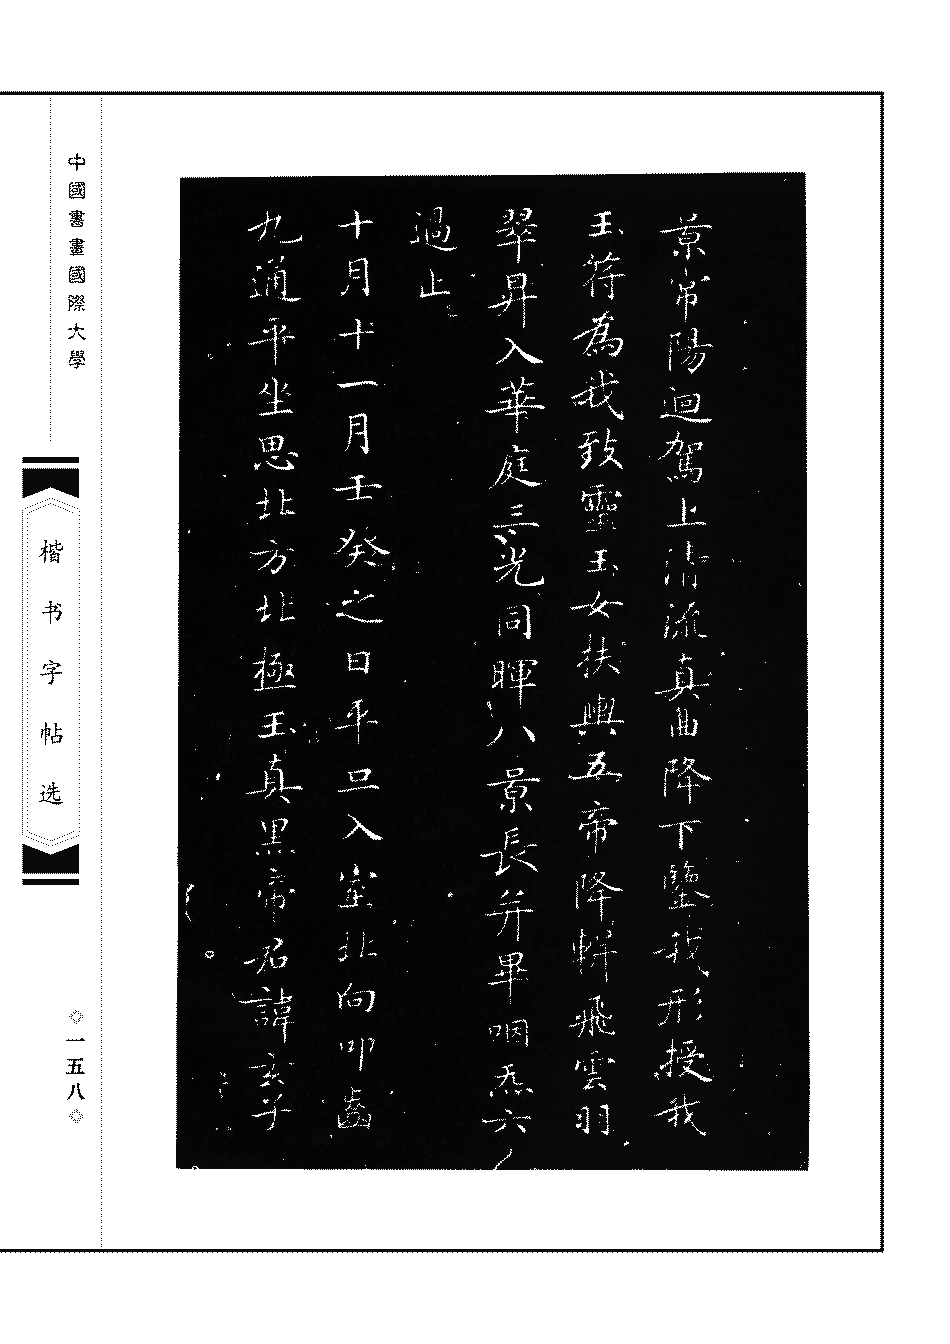 景常陽迴駕上清流真曲降下鑒我形授我
玉符為我致靈玉女扶輿五帝降軿飛雲羽
翠昇入華庭三光同暉八景長并畢咽炁六
過止
十月十一月壬癸之日平旦入室北向叩齒
九通平坐思北方北極玉真黑帝君諱玄子
中國書畫國際大學
楷书字帖选
◇一五八◇